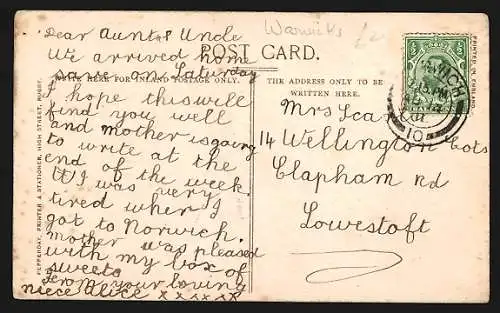 Warwicks £2
POST CARD.
WRITE HERE FOR INLAND POSTAGE ONLY.
THE ADDRESS ONLY TO BE
WRITTEN HERE.
Dear Aunt & Uncle
We arrived home
safe on Saturday
I hope this will
find you well
and mother is going
to write at the
end of the week
I was very
tired when I
got to Norwich.
mother was pleased
with my box of
sweets
from your loving
niece Alice x x x x x x
Mrs Sca
14 Wellington Cots
Clapham Rd
Lowestoft
PEPPERDAY, PRINTER & STATIONER, HIGH STREET, RUGBY.
PRINTED IN ENGLAND